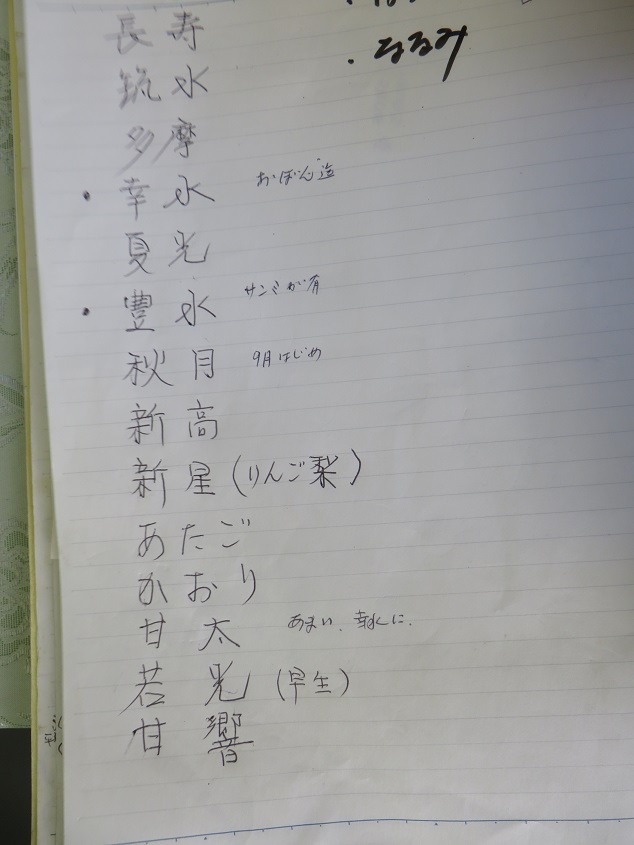 ・なるみ
長寿
筑水
多摩
・幸水 おぼん迄
夏光
・豊水 サンミが有
秋月 9月はじめ
新高
新星(りんご梨)
あたご
かおり
甘太 あまい、幸水に、
若光(早生)
甘響